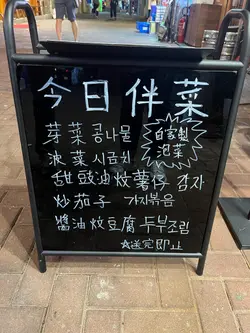 今日伴菜
自家製
泡菜
芽菜 콩나물
波菜 시금치
甜豉油炆薯仔 감자
炒茄子 가지볶음
醬油炆豆腐 두부조림
☆送完即止